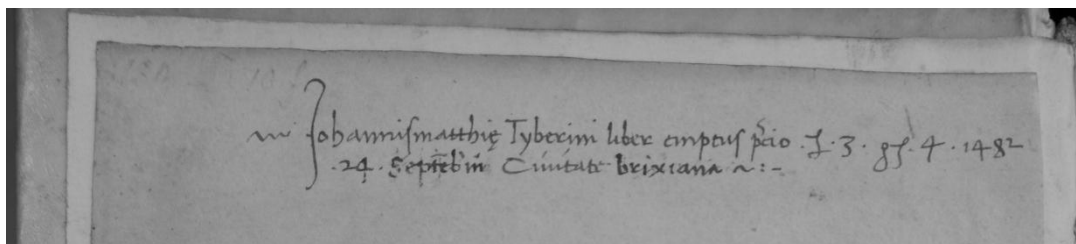 Johannismatthię Tyberini liber emptus p̄cio · L · 3 · gſ · 4 · 1482
· 24 · Septēbris Civitate brixiana ~ : -